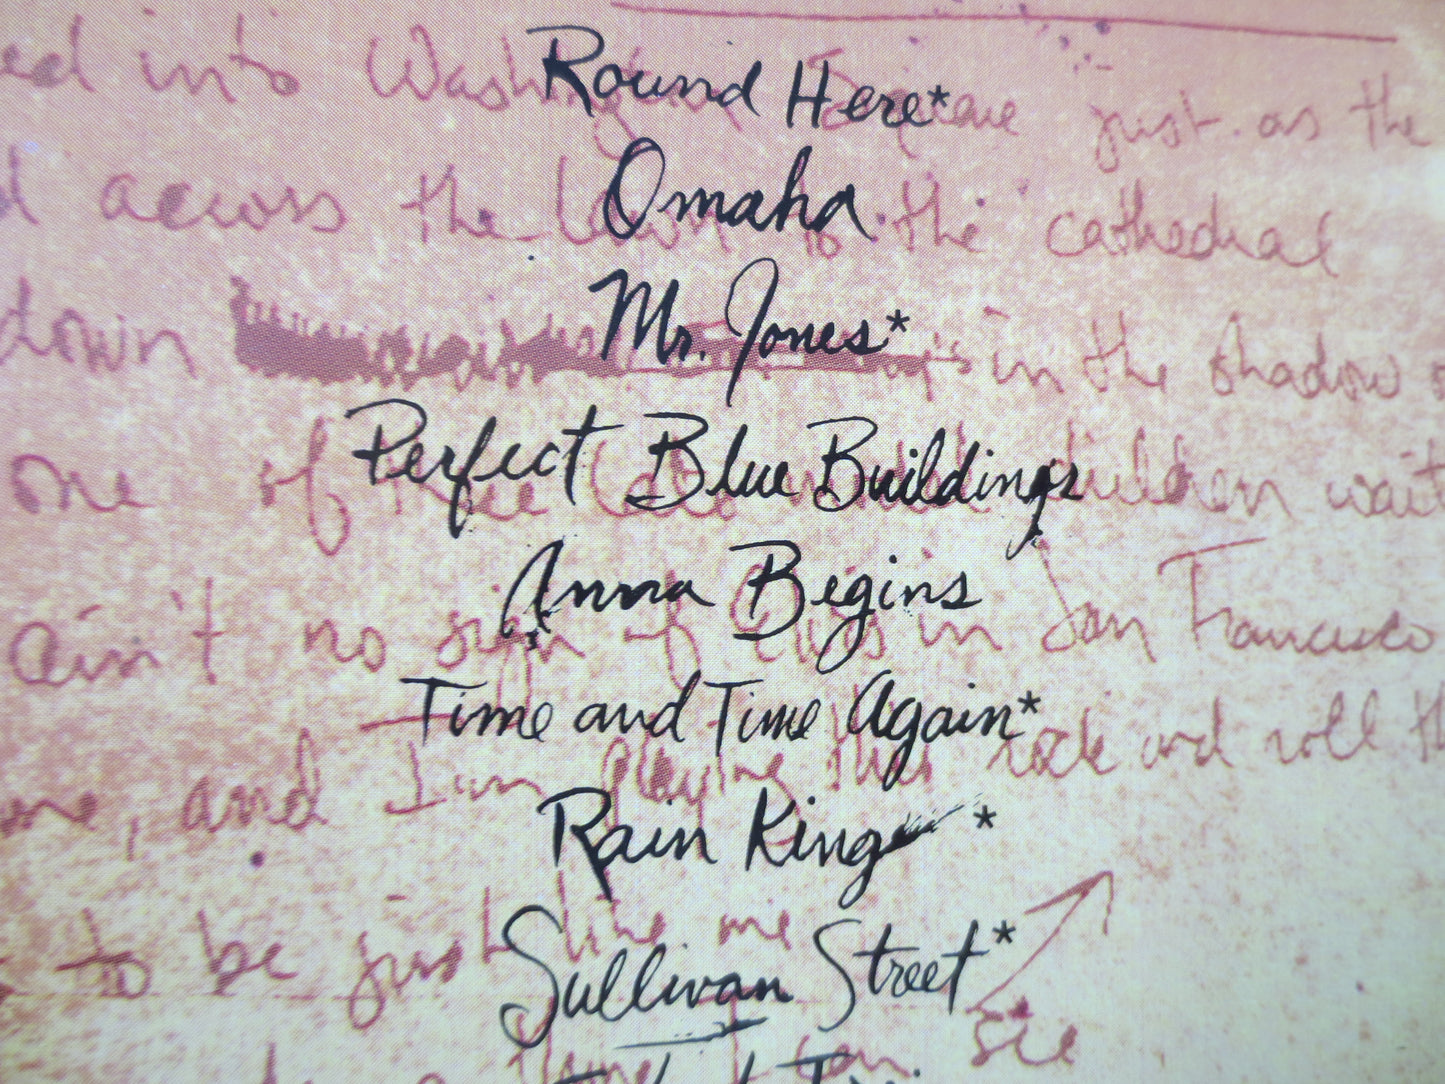 Round Here*
Omaha
Mr. Jones*
Perfect Blue Buildings
Anna Begins
Time and Time Again*
Rain King *
Sullivan Street*
ed into Washington Square just as the
across the lawn to the cathedral
down in the shadow
one of three children wait
ain't no sign of in San Francisco
me, and I'm playing this rock and roll
to be just like me
I can see